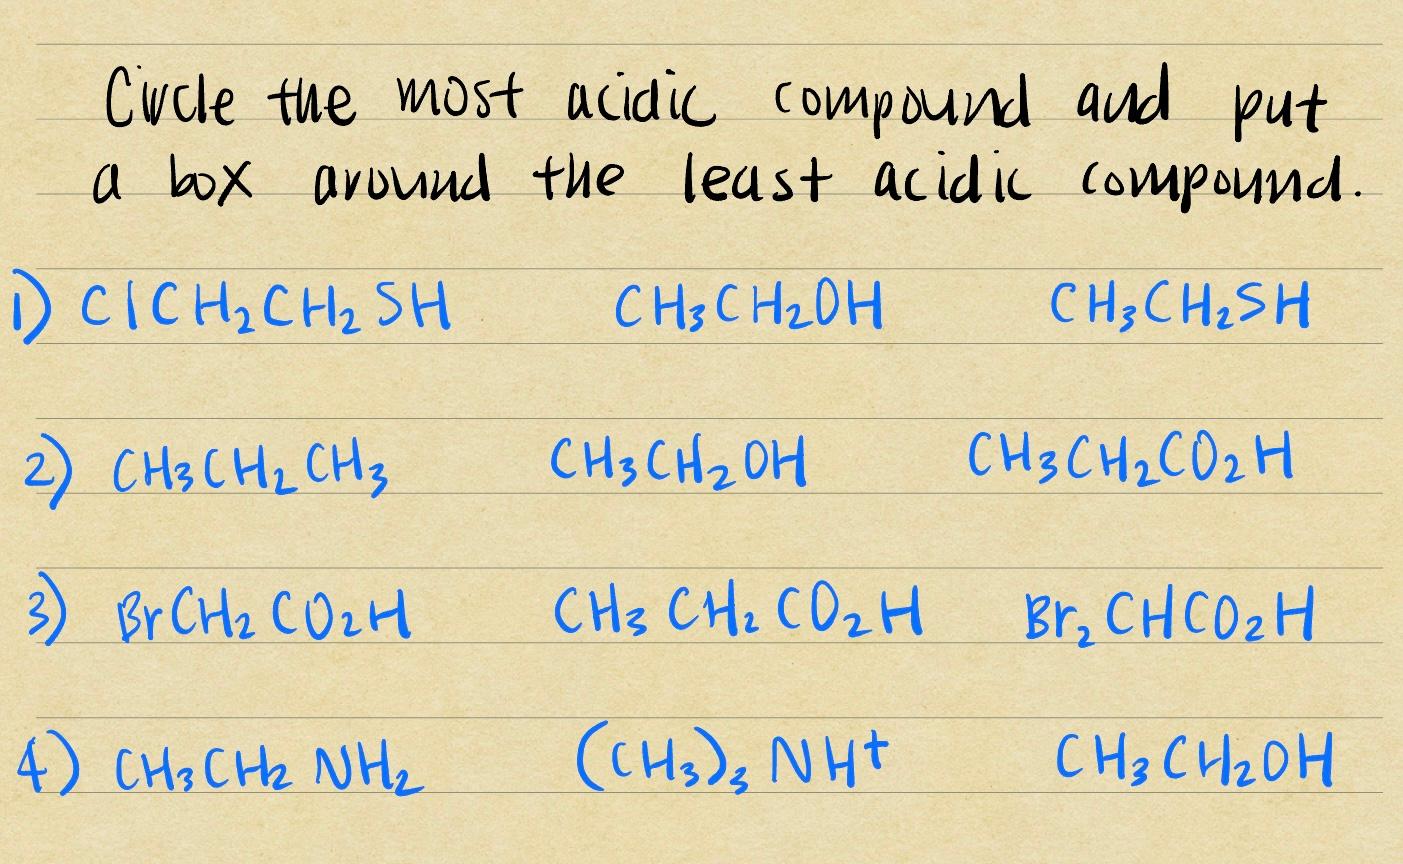 Circle the most acidic compound and put
a box around the least acidic compound.
1) ClCH₂CH₂SH CH₃CH₂OH CH₃CH₂SH
2) CH₃CH₂CH₃ CH₃CH₂OH CH₃CH₂CO₂H
3) BrCH₂CO₂H CH₃CH₂CO₂H Br₂CHCO₂H
4) CH₃CH₂NH₂ (CH₃)₃NH⁺ CH₃CH₂OH